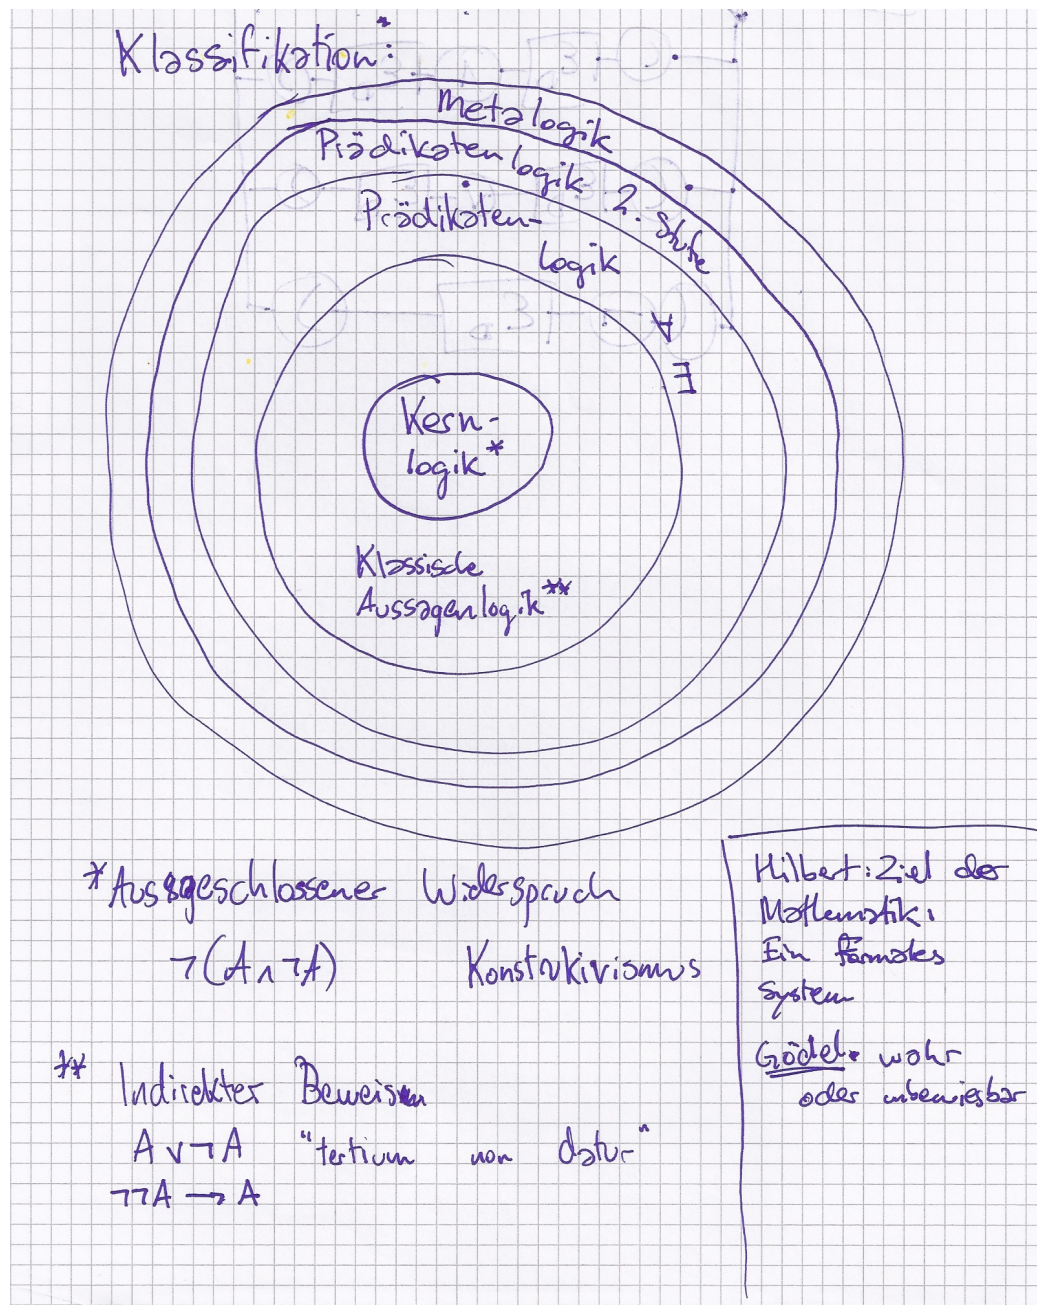 Klassifikation*:
Metalogik
Prädikatenlogik 2. Stufe
Prädikaten-
logik
∀
∃
Kern-
logik*
Klassische
Aussagenlogik**
*Ausgeschlossener Widerspruch
¬(A∧¬A) Konstrukivismus
** Indirekter Beweis
A∨¬A "tertium non datur"
¬¬A → A
Hilbert: Ziel der
Mathematik:
Ein formales
System
Gödel: wahr
oder unbeweisbar